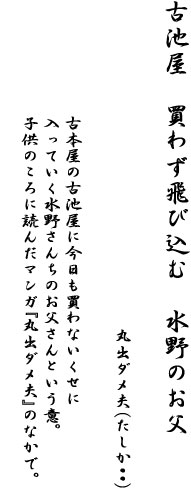 古池屋　買わず飛び込む　水野のお父
丸出ダメ夫(たしか・・)
古本屋の古池屋に今日も買わないくせに
入っていく水野さんちのお父さんという意。
子供のころに読んだマンガ『丸出ダメ夫』のなかで。